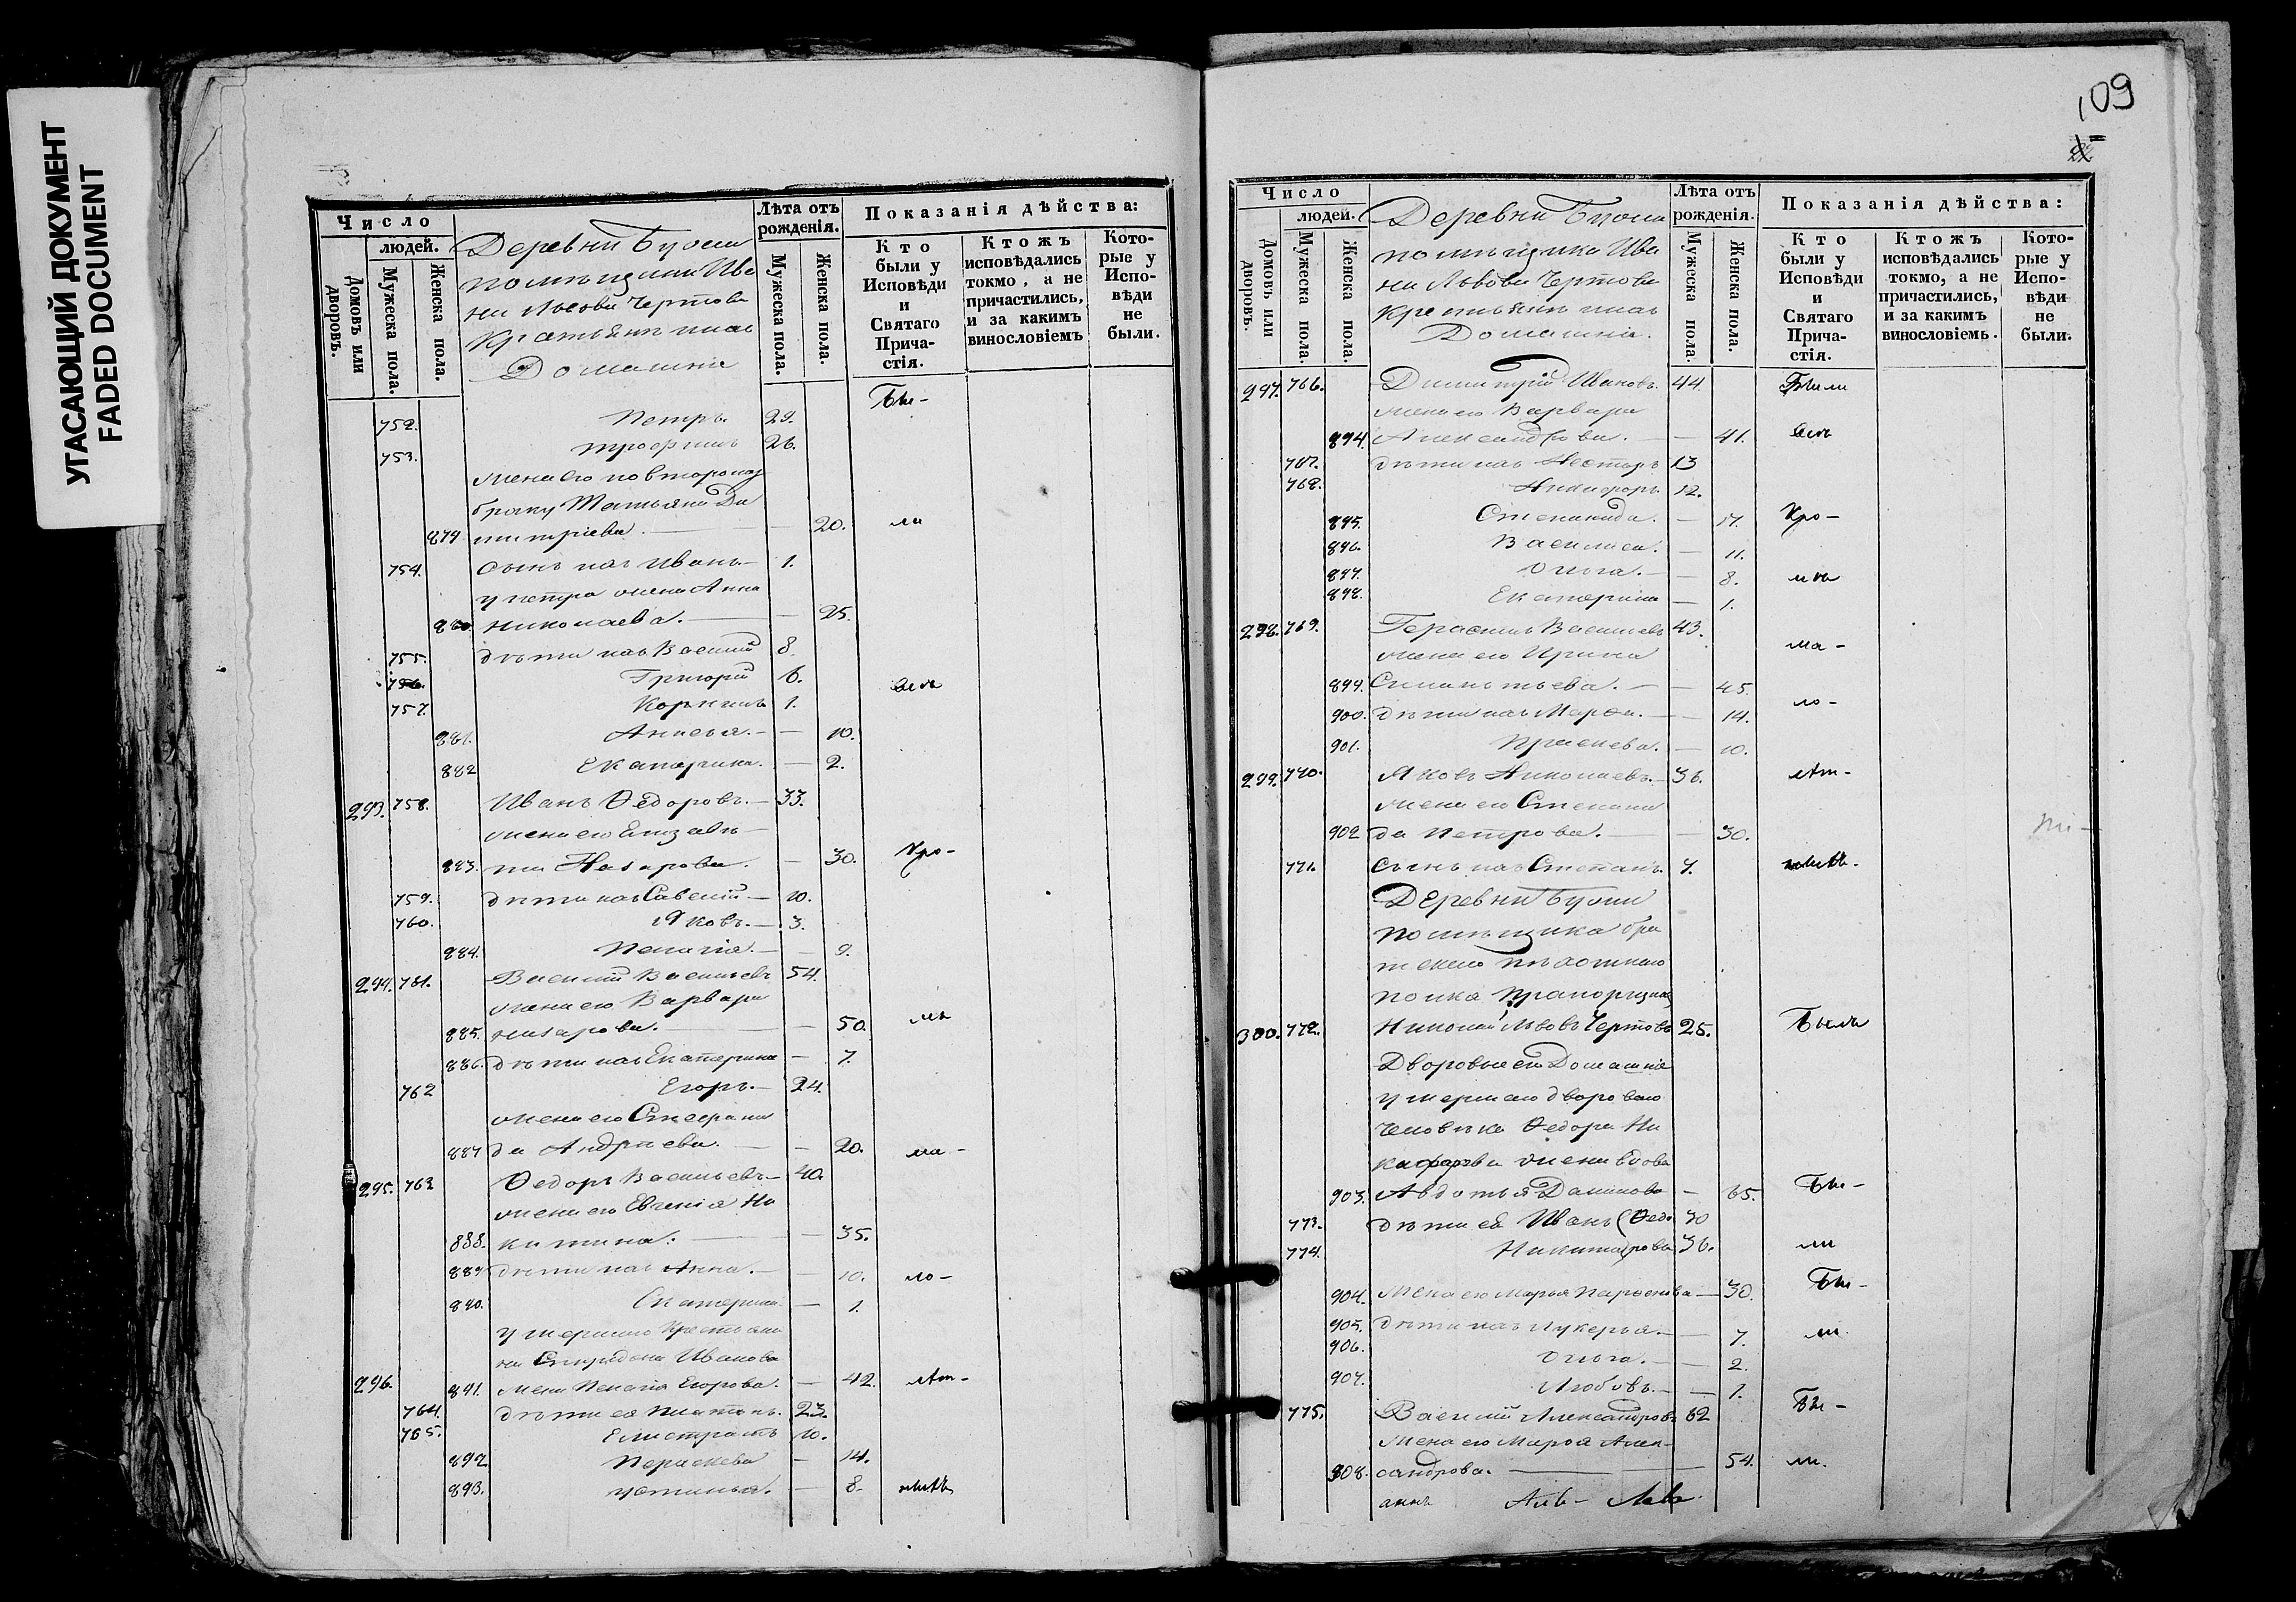 УГАСАЮЩИЙ ДОКУМЕНТ
FADED DOCUMENT
Число
людей.
Домовъ или дворовъ.
Мужеска пола.
Женска пола.
Деревни
помѣщика Ива
на Львова Чертова
Домашніе
Лѣта отъ рожденія.
Мужеска пола.
Женска пола.
Показанія дѣйства:
Кто были у Исповѣди и Святаго Причастія.
Ктожъ исповѣдались токмо, а не причастились, и за какимъ винословіемъ
Которые у Исповѣди не были.
752. Петръ. 29. Бы-
753. Трофимъ 26.
жена его по второму
браку Татьяна Ди
879 митріева. — — 20. ли
754. сынъ ихъ Иванъ — 1.
у Петра жена Анна
880. Николаева. — — 25.
755. дѣти ихъ Василій 8.
756. Григорій 6. всѣ
757. Корнилъ 1.
881. Анисья. — — 10.
882 Екатерина. — 2.
293. 758. Иванъ Ѳедоровъ. — 33.
жена его Елизаве—
883. та Назарова. — 30. Кро-
759. дѣти ихъ Савелій — 10.
760. Яковъ. — 3.
884. Пелагія. — — 9.
294. 761. Василій Васильевъ 54.
жена его Варвара
885. Назарова. — — 50. мѣ
886. дѣти ихъ Екатерина — 7.
762 Егоръ. — 24.
жена его Степани
887 да Андреева. — — 20. ма-
295. 763 Ѳедоръ Васильевъ — 40.
жена его Евгенія Ни
888. китина. — — 35.
889 дѣти ихъ Анна. — — 10. ло-
890. Екатерина — 1.
умершаго крестьяни
на Спиридона Иванова
296. 891. жена Пелагія Егорова. — 42. лѣт-
764. дѣти ея Платонъ. 23.
765. Елистратъ 10.
892 Параскева — 14.
893. Устинья. — 8. нихъ
109
Число
людей.
Домовъ или дворовъ.
Мужеска пола.
Женска пола.
Деревни
помѣщика Ива
на Львова Чертова
Домашніе.
Лѣта отъ рожденія.
Мужеска пола.
Женска пола.
Показанія дѣйства:
Кто были у Исповѣди и Святаго Причастія.
Ктожъ исповѣдались токмо, а не причастились, и за какимъ винословіемъ.
Которые у Исповѣди не были.
297. 766. Димитрій Ивановъ. 44. Были
жена его Варвара
894. Александрова. — — 41. всѣ
767. дѣти ихъ Несторъ 13
768. Никифоръ 12.
895. Степанида. — 17. Кро-
896. Василиса. — 11.
897. Ольга. — — 8. мѣ
898. Екатерина — 1.
298. 769. Герасимъ Васильевъ 43.
жена его Ирина ма-
899. Силантьева. — — 45.
900. дѣти ихъ Марѳа. — — 14. ло-
901. Праскева. — 10.
299. 770. Яковъ Николаевъ. — 36. лѣт-
жена его Степани
902 да Петрова. — — 30.
771. Сынъ ихъ Степанъ. 7. нихъ.
Деревни
помѣщика Бра
тскаго пѣхотнаго
полка Прапорщикъ
300. 772. Николай Львовъ Чертовъ 25. Былъ
Дворовые его Домашніе
умершаго двороваго
человѣка Ѳедора Ни
кифорова жена вдова
903. Авдотья Данилова — 65. Бы-
773. дѣти ея Иванъ (Ѳедо 30
774. Никита) рова 36. ли
904. Жена его Марья Парѳенова — 30. Бы-
905. дѣти ихъ Лукерья. — — 7. ли.
906. Ольга. — — 2.
907. Любовь. — — 1.
775. Василій Александровъ 62 Бы-
жена его Марѳа Алек-
908. сандрова. — — 54. ли.